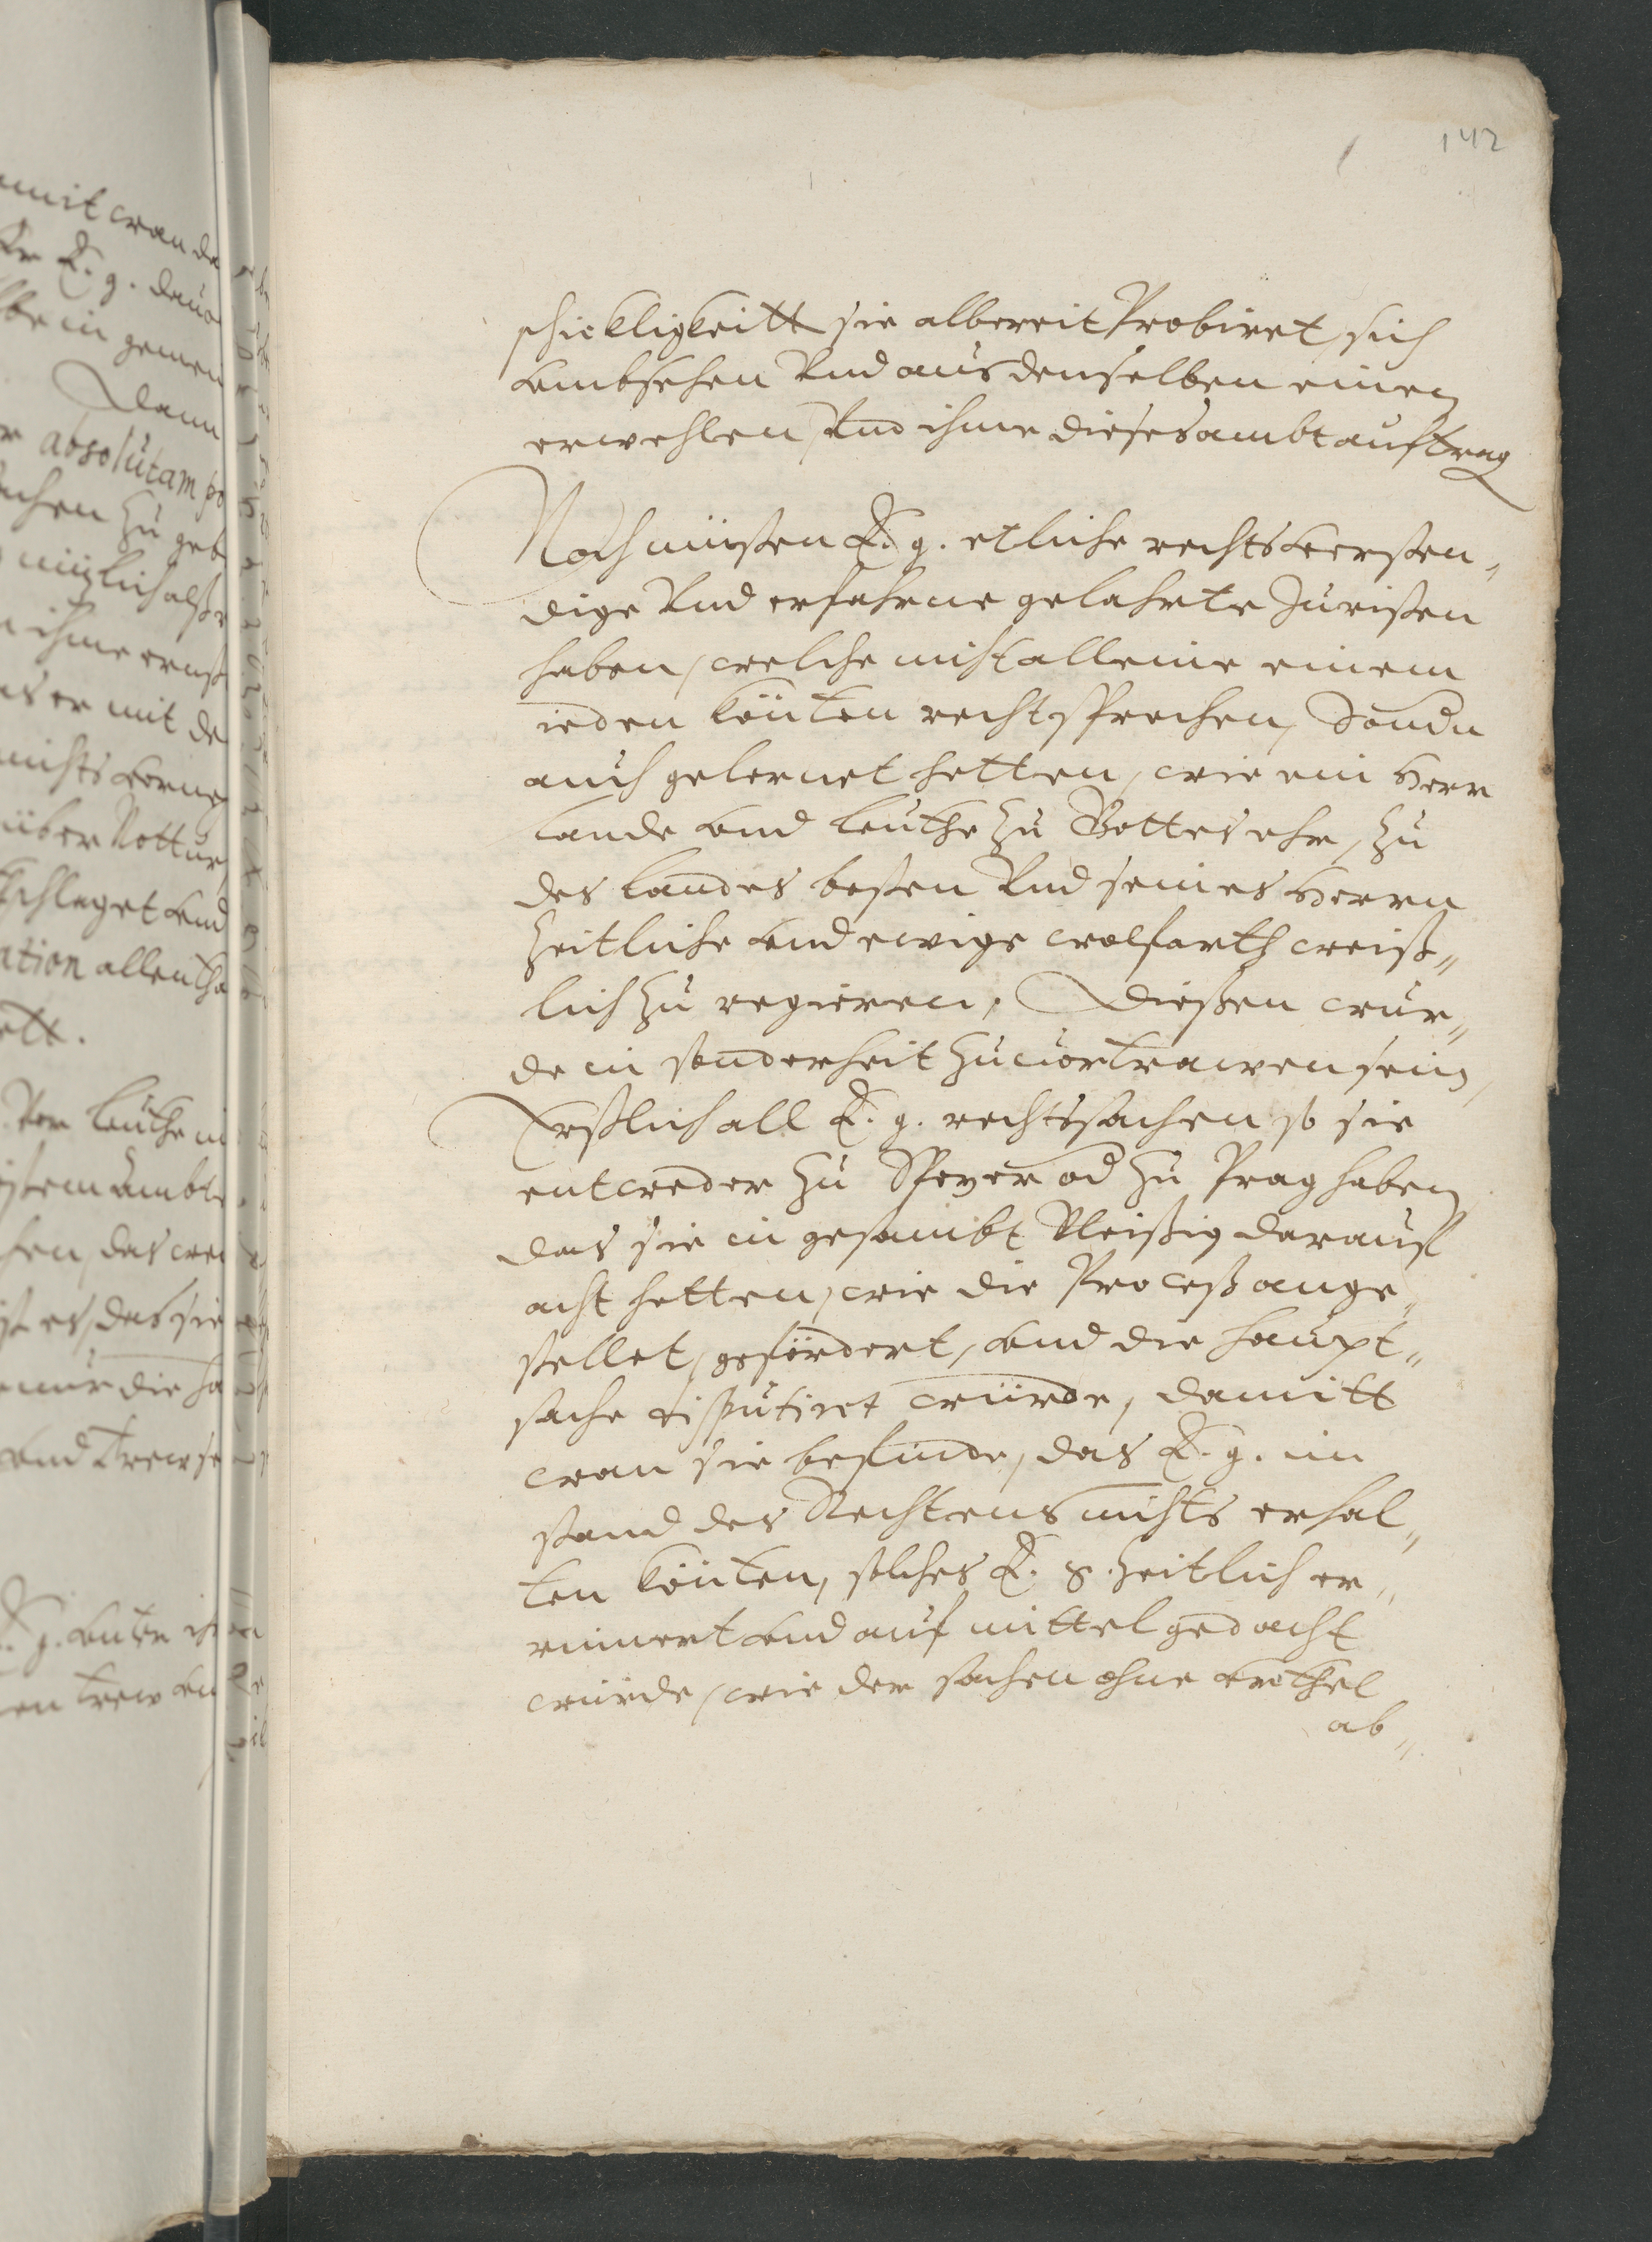 142
schickligkeitt sie albereit Probiret, sich
vmbsehen Vnd aus denselben einen
erwehlen, Vnd ihme dieses ambt aufftrag
Noch müssen E. g. etliche rechtsversten,,
dige Vnd erfahrne gelahrte Juristen
haben, welche nicht alleine einem
ieden könten recht sprechen, Sondern
auch gelernet hetten, wie ein Herr
Lande vnd Leuthe zu Gottes ehr, zu
des Landes besten Vnd seines Herrn
zeitliche vnd ewige wolfarth weiß,,
lich zu regieren, Diesen wur,,
de in sonderheit zuuortrawen sein,
Erstlich all E. g. rechtssachen so sie
entweder zu Speyer od zu Prag haben
das sie in gesambt Vleissig darauff
acht hetten, wie die Process ange,,
stellet, gefördert, vnd die haupt,,
sache disputiret würde, damitt
wan sie befinde, das E. g. im
stand des Rechtens nichts erhal,,
ten könten, solches E. g. zeitlich er,,
innert vnd auf mittel gedacht
würde, wie der sachen ohne vrthel
ab,,